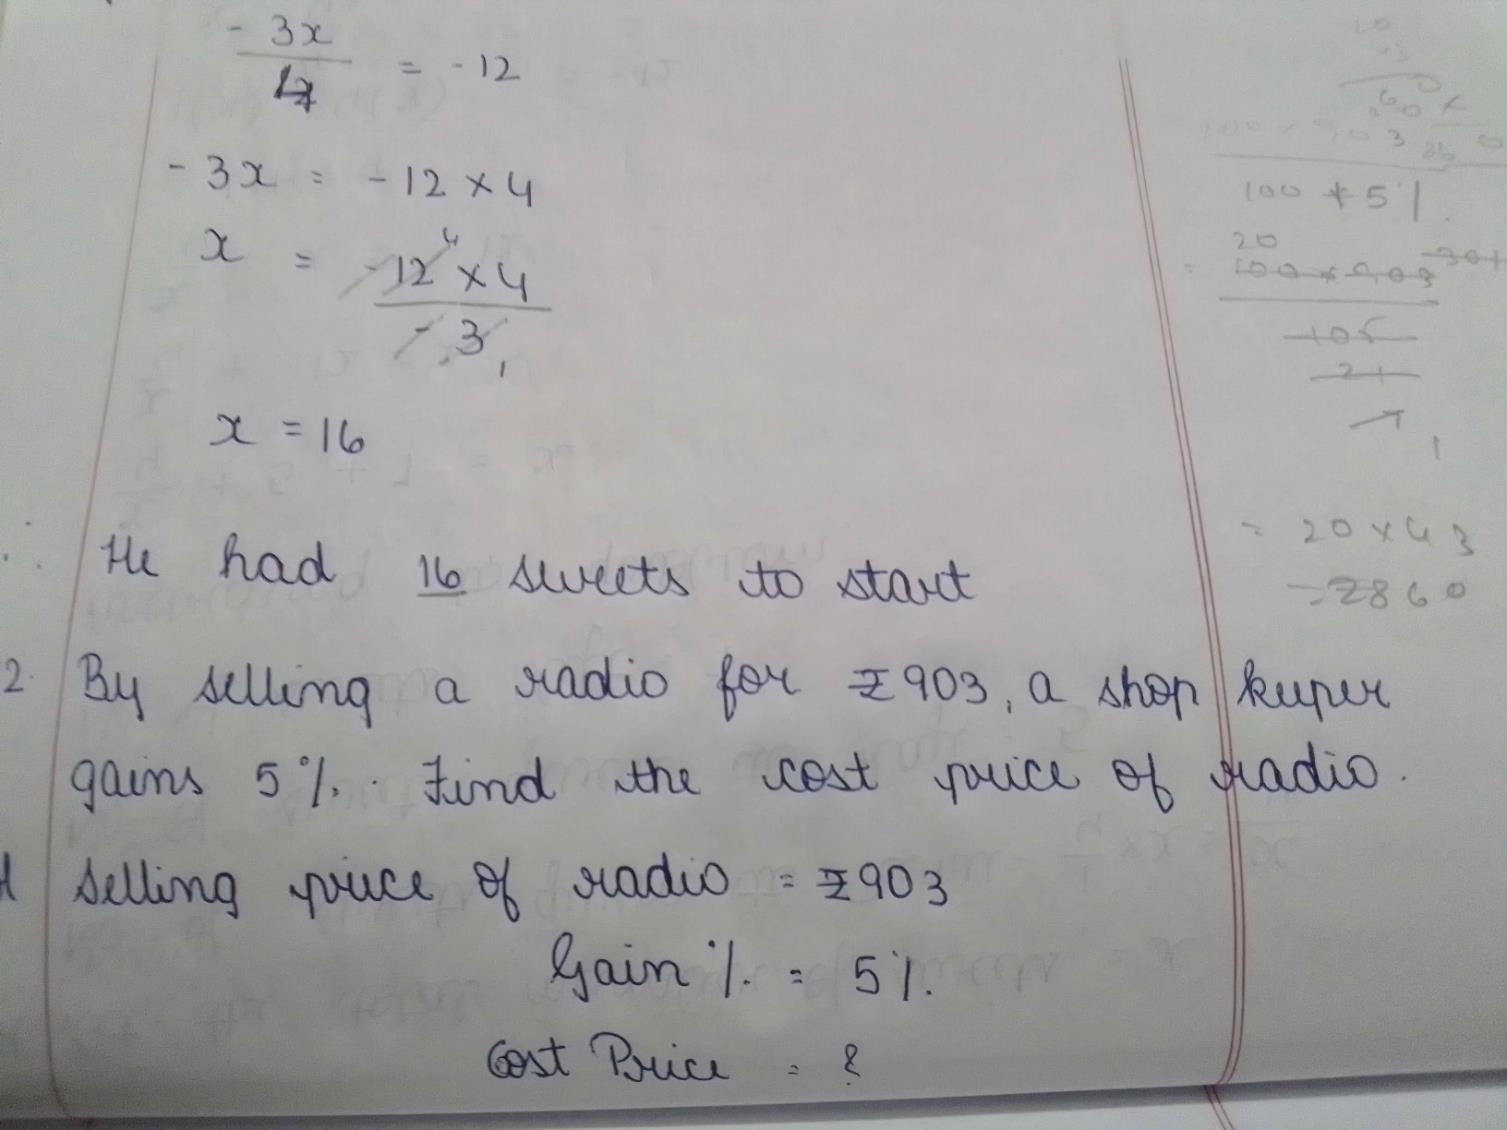 - 3x
4 = -12
- 3x = -12 × 4
x = -12 4 × 4
- 3 1
x = 16
∴ He had 16 sweets to start
2. By selling a radio for ₹903, a shop keeper
gains 5%. Find the cost price of radio.
selling price of radio = ₹903
Gain % = 5%.
Cost Price = ?
100 + 5%.
20
100 × 903 301
105
21
7
1
= 20 × 43
= ₹860